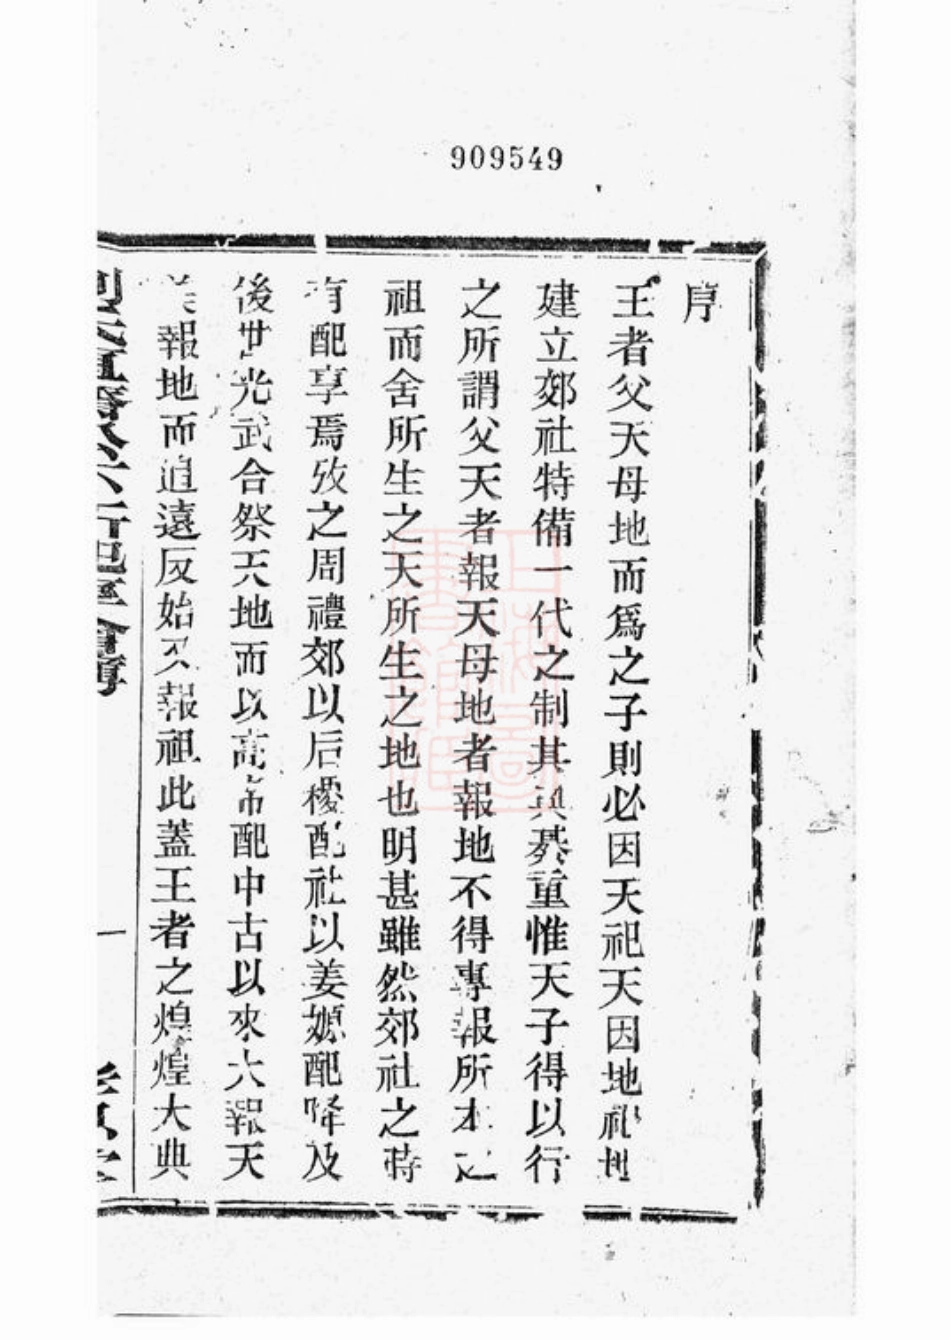 909549
序
王者父天母地而為之子則必因天祀天因地祀地
建立郊社特備一代之制其典綦重惟天子得以行
之所謂父天者報天母地者報地不得專報所本之
祖而舍所生之天所生之地也明甚雖然郊社之時
有配享焉攷之周禮郊以后稷配社以姜嫄配降及
後世光武合祭天地而以高帝配中古以來大報天
報地而追遠反始又報祖此蓋王者之煌煌大典
一
上海圖書館藏